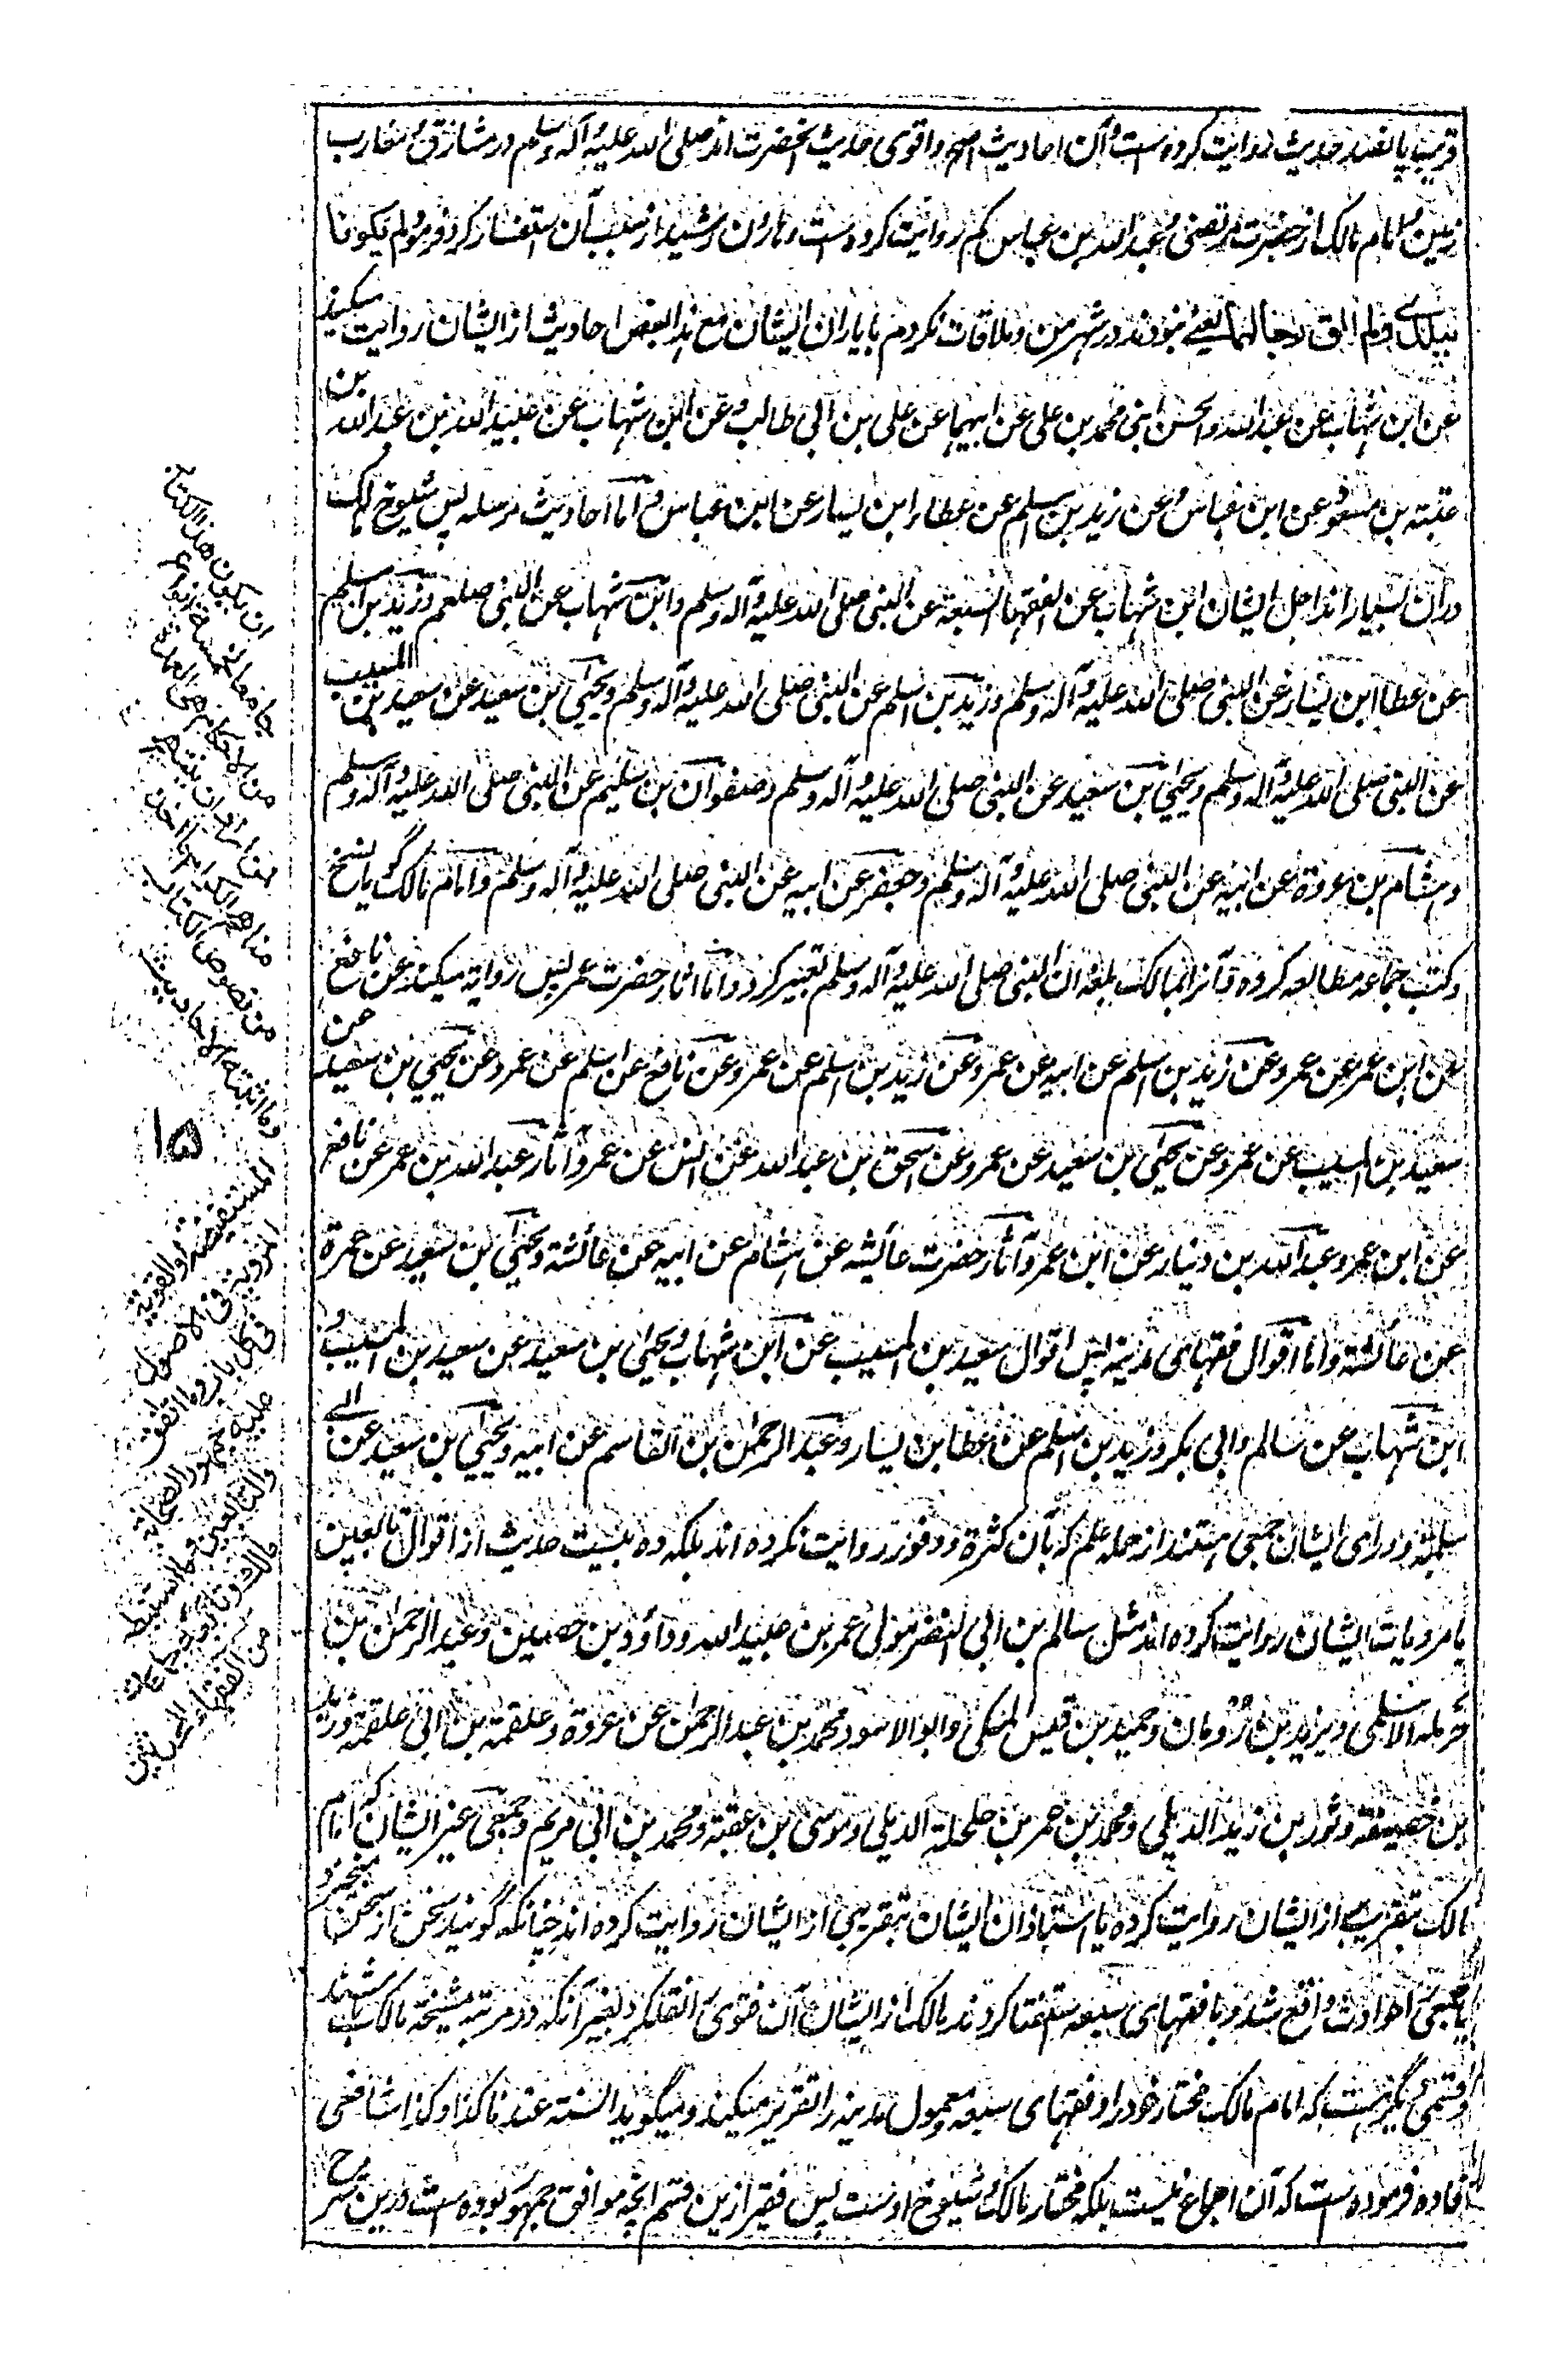 قریب پانصد حدیث روایت کرده است و آن احادیث اصح و اقوی حدیث آنحضرت اند صلی الله علیه و آله وسلم در مشارق و مغارب
زمین و امام مالک از حضرت مرتضی و عبدالله بن عباس کم روایت کرده است و هارون رشید از سبب آن استفسار کرد فرمود لم یکونا
ببلدی و لم الق رجالهما یعنی نبودند در شهر من و ملاقات نکردم با یاران ایشان مع هذا بعض احادیث از ایشان روایت میکند
عن ابن شهاب عن عبدالله والحسن ابنی محمد بن علی عن ابیهما عن علی بن ابی طالب و عن ابن شهاب عن عبید الله بن عبدالله بن
عتبة بن مسعود عن ابن عباس و عن زید بن اسلم عن عطاء ابن یسار عن ابن عباس و اما احادیث مرسله پس شیوخ مالک
در آن بسیار اند اجل ایشان ابن شهاب عن الفقهاء السبعة عن النبی صلی الله علیه و آله وسلم و ابن شهاب عن النبی صلعم و زید بن اسلم
عن عطا ابن یسار عن النبی صلی الله علیه و آله وسلم و زید بن اسلم عن النبی صلی الله علیه و آله وسلم و یحیی بن سعید عن سعید بن المسیب
عن النبی صلی الله علیه و آله وسلم و یحیی بن سعید عن النبی صلی الله علیه و آله وسلم و صفوان بن سلیم عن النبی صلی الله علیه و آله وسلم
و هشام بن عروة عن ابیه عن النبی صلی الله علیه و آله وسلم و جعفر عن ابیه عن النبی صلی الله علیه و آله وسلم و امام مالک گویا نسخ
و کتب جماعه مطالعه کرده و آنرا بمالک بلغه ان النبی صلی الله علیه و آله وسلم تعبیر کرد و اما آثار حضرت عمر پس روایة میکند عن نافع
عن ابن عمر عن عمر و عن زید بن اسلم عن ابیه عن عمر و عن زید بن اسلم عن عمر و عن نافع عن اسلم عن عمر و عن یحیی بن سعید عن
سعید بن المسیب عن عمر و عن یحیی بن سعید عن عمر و عن اسحق بن عبدالله عن انس عن عمر و آثار عبدالله بن عمر عن نافع
عن ابن عمر و عبدالله بن دینار عن ابن عمر و آثار حضرت عایشه عن هشام عن ابیه عن عائشة و یحیی بن سعید عن عمرة
عن عائشة و اما اقوال فقهای مدینه پس اقوال سعید بن المسیب عن ابن شهاب و یحیی بن سعید عن سعید بن المسیب و
ابن شهاب عن سالم و ابی بکر و زید بن اسلم عن عطا بن یسار و عبد الرحمن بن القاسم عن ابیه و یحیی بن سعید عن ابی
سلمة و ورای ایشان جمعی هستند از حمله علم که بآن کثرة و وفور روایت نکرده اند بلکه ده بیست حدیث از اقوال تابعین
یا مرویات ایشان روایت کرده اند مثل سالم بن ابی النضر مولی عمر بن عبید الله و داؤد بن حصین و عبد الرحمن بن
حرملة الاسلمی و یزید بن رومان و حمید بن قیس المکی و ابو الاسود محمد بن عبد الرحمن عن عروة و علقمة بن ابی علقمة و یزید
بن خصیفة و ثور بن زید الدیلی و محمد بن عمر بن حلحلة الدیلی و موسی بن عقبة و محمد بن ابی مریم و جمعی غیر ایشان که امام
مالک بتقریب از ایشان روایت کرده یا استاذان ایشان بتقریبی از ایشان روایت کرده اند چنانکه گویند سخن از سخن میخیزد
یا جمعی را حوادث واقع شد و با فقهای سبعه استفتا کردند مالک از ایشان آن فتوی را نقل کرد بغیر آنکه در مرتبه مشیخة مالک باشند
و قسمی دیگر هست که امام مالک مختار خود را و فقهای سبعه و معمول مدینه را تقریر میکند و میگوید السنة عندنا کذا و کذا شافعی
افاده فرموده است که آن اجماع نیست بلکه مختار مالک و شیوخ اوست پس فقیر ازین قسم آنچه موافق جمهور بوده است درین شرح
ان یکون هذا الکتاب
جامعا لخمسة انواع
من الاحکام هی العدة
من نصوص الکتاب
وما اثبته الاحادیث
۱۵
المستفیضة او القویة
المرویة فی الاصول
فی کل باب وما اتفق
علیه جمهور الصحابة
والتابعین وما استنبط
مالک وتابعه جماعات
من الفقهاء المحدثین